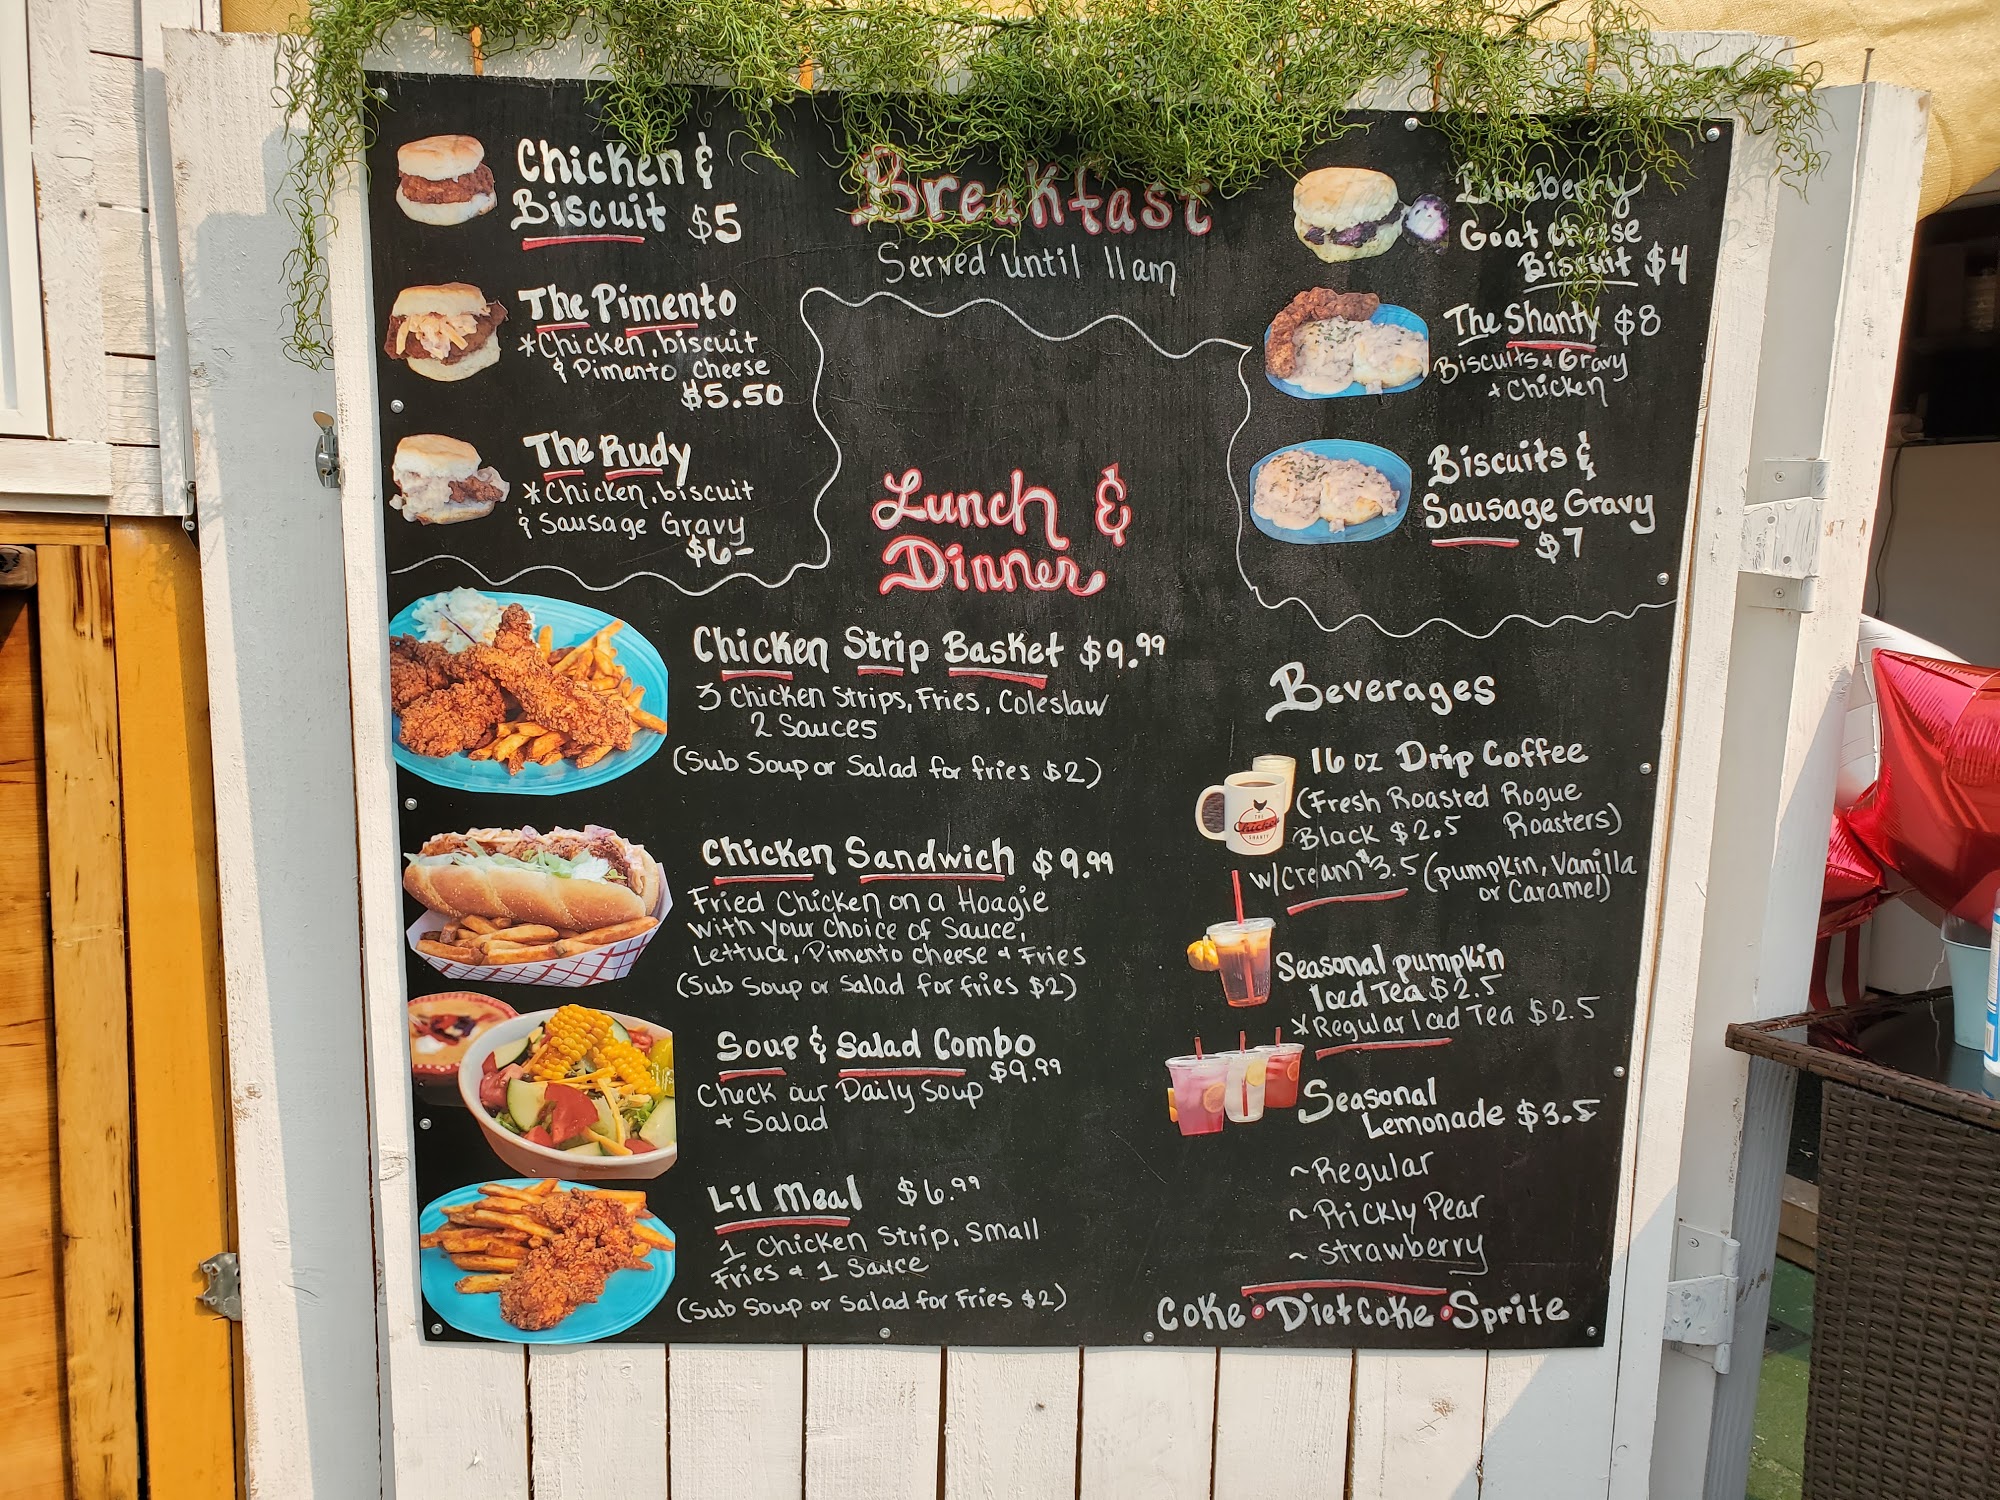 Chicken &
Biscuit $5
The Pimento
*Chicken, biscuit
& Pimento Cheese
$5.50
The Rudy
*Chicken, biscuit
& Sausage Gravy
$6-
Breakfast
Served until 11am
Blueberry
Goat cheese
Biscuit $4
The Shanty $8
Biscuits & Gravy
+ Chicken
Biscuits &
Sausage Gravy
$7
Lunch &
Dinner
Chicken Strip Basket $9.99
3 Chicken Strips, Fries, Coleslaw
2 Sauces
(Sub Soup or Salad for fries $2)
Chicken Sandwich $9.99
Fried Chicken on a Hoagie
with your choice of Sauce,
Lettuce, Pimento cheese & Fries
(Sub Soup or Salad for fries $2)
Soup & Salad Combo
$9.99
Check our Daily Soup
+ Salad
Lil Meal $6.99
1 Chicken Strip, Small
Fries & 1 Sauce
(Sub Soup or Salad for Fries $2)
Beverages
16 oz Drip Coffee
(Fresh Roasted Rogue
Black $2.5 Roasters)
w/cream $3.5 (pumpkin, Vanilla
or Caramel)
THE
Chicken
SHANTY
Seasonal pumpkin
Iced Tea $2.5
*Regular Iced Tea $2.5
Seasonal
Lemonade $3.5
~Regular
~Prickly Pear
~Strawberry
Coke • Diet Coke • Sprite